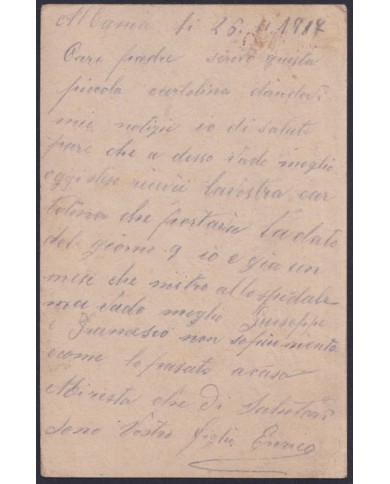 Albania li 26 11 1917
Caro padre scrivo questa
picola cartolina dandovi
mie notizie io di salute
pare che a desso vado meglio
oggi stess ricevii la vostra car
tolina che portava la data
del giorno 9 io e gia un
mese che mitro allo spidale
ma vado meglio Giuseppe
e Francesco non so piu
come lo pasato a casa
Miresta che di Salutarvi
sono Vostro figlio Enrico